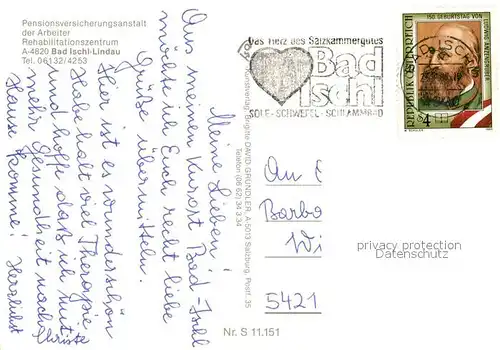 Pensionsversicherungsanstalt
der Arbeiter
Rehabilitationszentrum
A-4820 Bad Ischl-Lindau
Tel. 06132/4253
Meine Lieben!
Aus meinen Kurort Bad-Ischl
möchte ich Euch recht liebe
Grüße übermitteln.
Hier ist es wunderschön
Habe halt viel Therapie
und hoffe, daß ich mit
mehr Gesundheit nach
Hause komme!
Herzlichst
Christe
Kunstverlag Brigitte DAVID-GRÜNDLER, A-5013 Salzburg, Postf. 35
Telefon (06 62) 34 3 34
Das Herz des Salzkammergutes
Bad
Ischl
SOLE-SCHWEFEL-SCHLAMMBAD
150. GEBURTSTAG VON
LUDWIG ANZENGRUBER
REPUBLIK ÖSTERREICH
S4
An
Barba
Wi
5421
privacy protection
Datenschutz
Nr. S 11.151